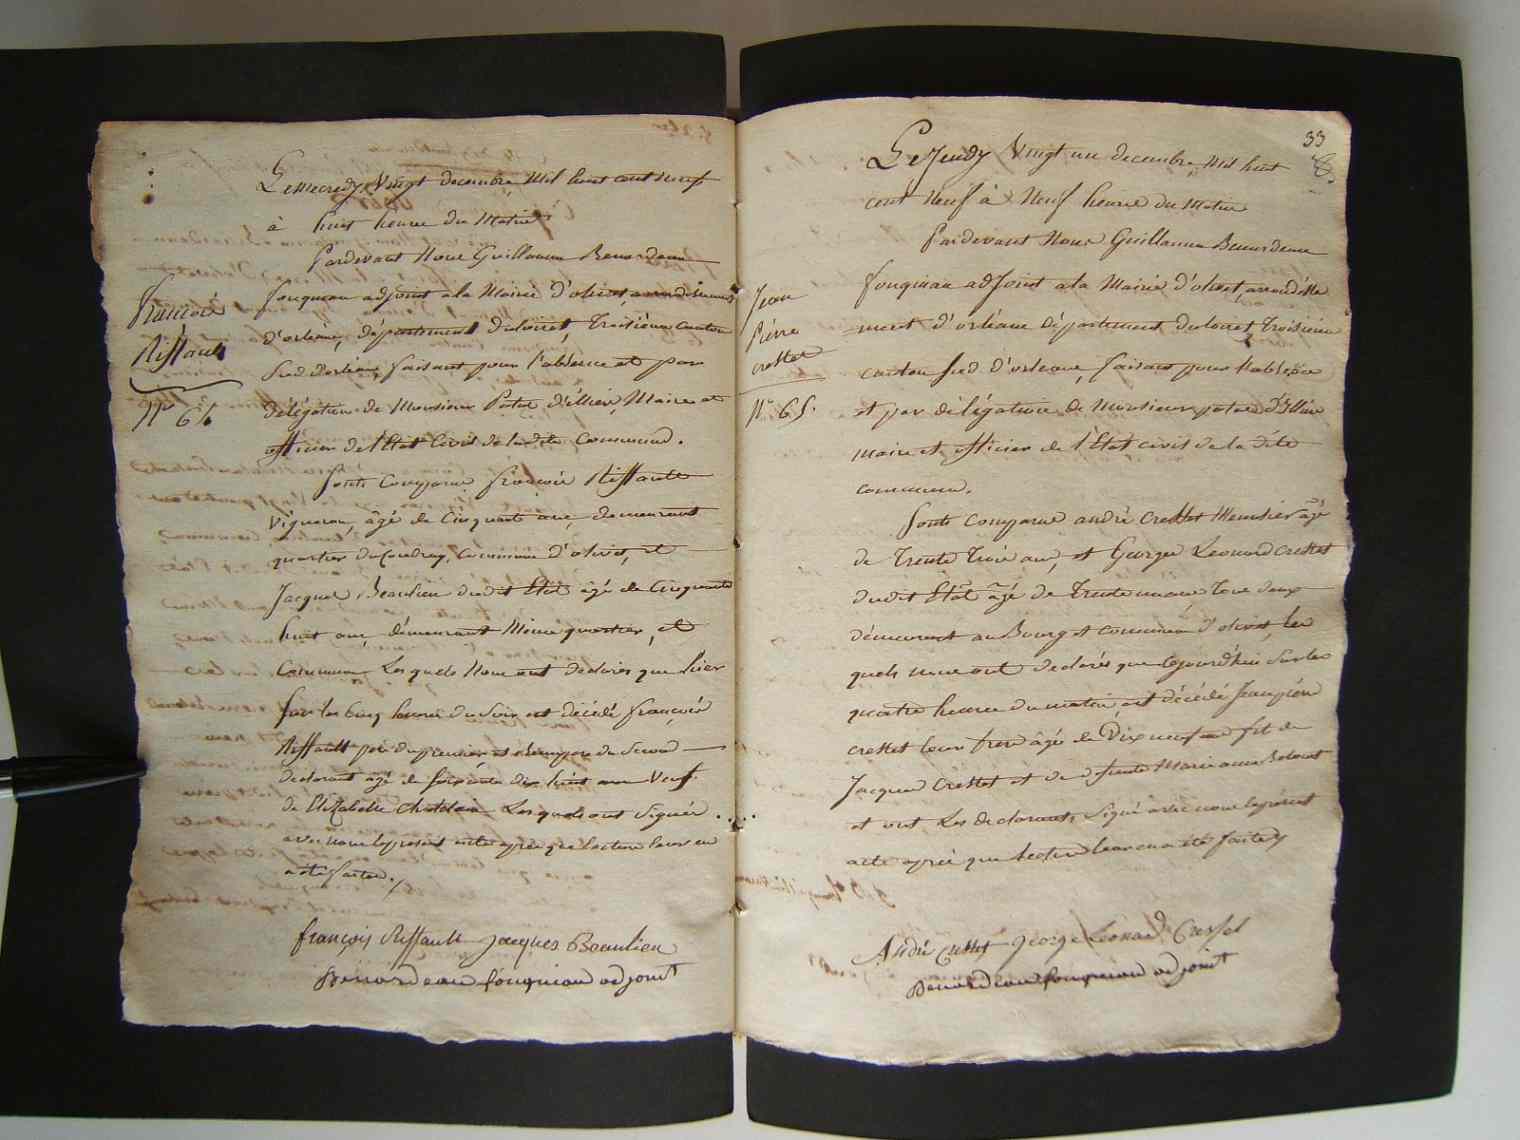 Le mecredy Vingt decembre Mil huit cent neuf
à huit heure du Matin
Pardevant Nous Guillaume Benardeau
fouqueau adjoint a la Mairie d'olivet, arrondissement
d'orléans, département du loiret, Troisième canton
Sud d'orléans, faisant pour l'absence et par
délégation de Monsieur Maire et
officier de l'Etat Civil de la dite Commune.
Sont Comparus François Riffault
Vigneron, âgé de Cinquante ans, demeurant
quartier du Coudray, Commune d'olivet, et
Jacques Beaulieu dudit Etat âgé de Cinquante
huit ans, demeurant Même quartier, et
Commune Lesquels Nous ont declarés que hier
sur les Cinq heures du Soir est décédé françois
Riffault père du premier et du Second
declarant âgé de soixante dix huit ans Veuf
de Elizabette Lesquels ont Signés
avec nous le present acte après que lecture leur en
a été faite.
François
Riffault
N° 64
françois Riffault Jacques Beaulieu
Benardeau fouqueau adjoint
33
Le Jeudy Vingt un decembre Mil huit
cent Neuf à Neuf heure du Matin
Pardevant Nous Guillaume Benardeau
fouqueau adjoint a la Mairie d'olivet, arrondisse
ment d'orléans département du loiret, Troisième
canton Sud d'orleans, faisant pour l'absence
et par délégation de Monsieur
maire et officier de l'Etat civil de la dite
commune.
Sont Comparus andré Crestet Menuisier âgé
de Trente Trois ans, et George Leonard Crestet
dudit Etat âgé de Trente un ans, Tous deux
démeurant au Bourg et commune d'olivet, les
quels nous ont declarés que cejourd'hui Sur les
quatre heures du matin est décédé Jean pierre
crestet leur frere âgé de Dix neuf ans fils de
Jacques Crestet et de defunte Marie anne
et ont Les declarants, Signé avec nous le present
acte après que lecture leur en a été faite
Jean
Pierre
crestet
N° 65.
André Crestet George Léonard Crestet
Benardeau fouqueau adjoint